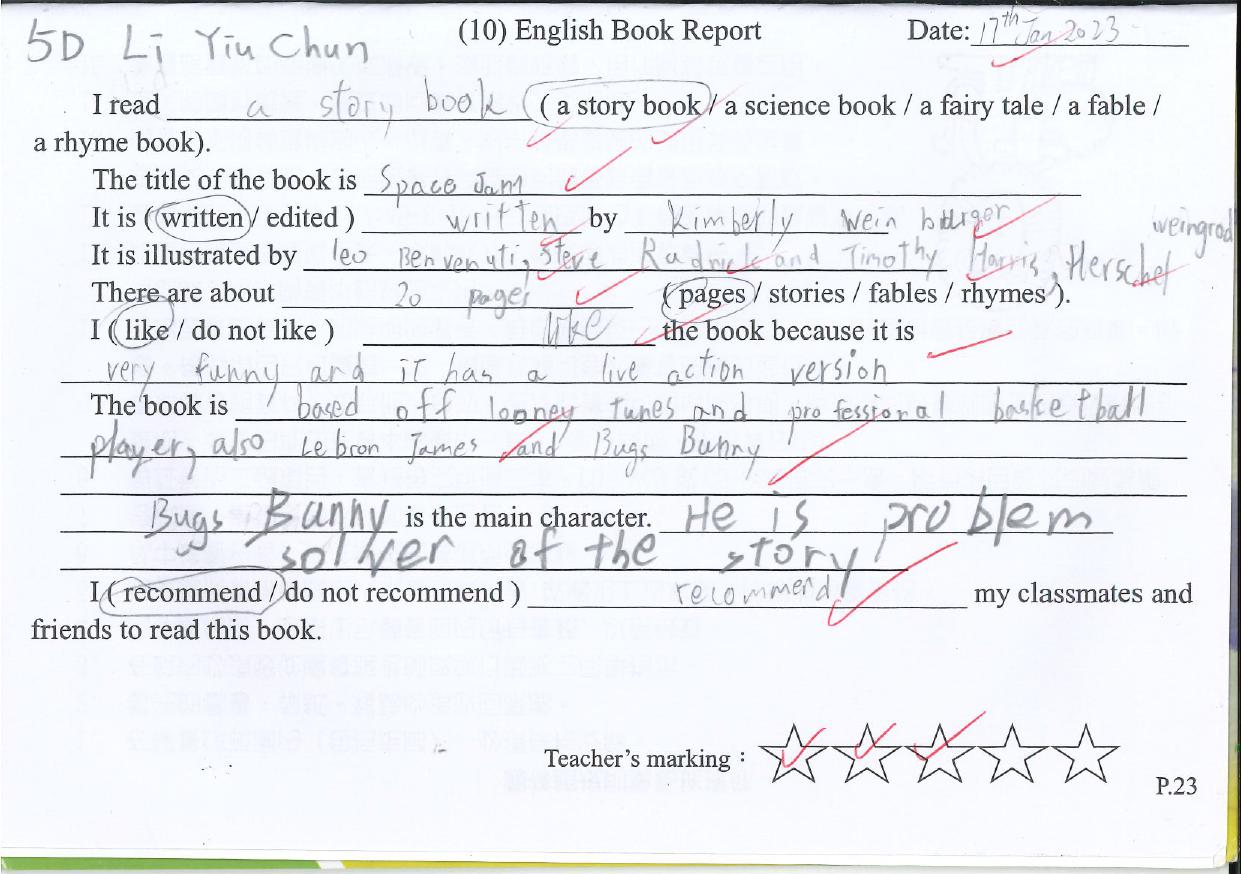 5D Li Yiu Chun (10) English Book Report Date: 17th Jan 2023
I read a story book ( a story book / a science book / a fairy tale / a fable /
a rhyme book).
The title of the book is Space Jam
It is ( written / edited ) written by Kimberly Wein
It is illustrated by leo Benvenuti, Steve and Timothy Harris, Herschel weingrod
There are about 20 pages ( pages / stories / fables / rhymes ).
I ( like / do not like ) like the book because it is
very funny and it has a live action version
The book is based off looney tunes and professional basketball
player, also Lebron James and Bugs Bunny
Bugs Bunny is the main character. He is problem
solver of the story
I ( recommend / do not recommend ) recommend my classmates and
friends to read this book.
Teacher's marking :
P.23